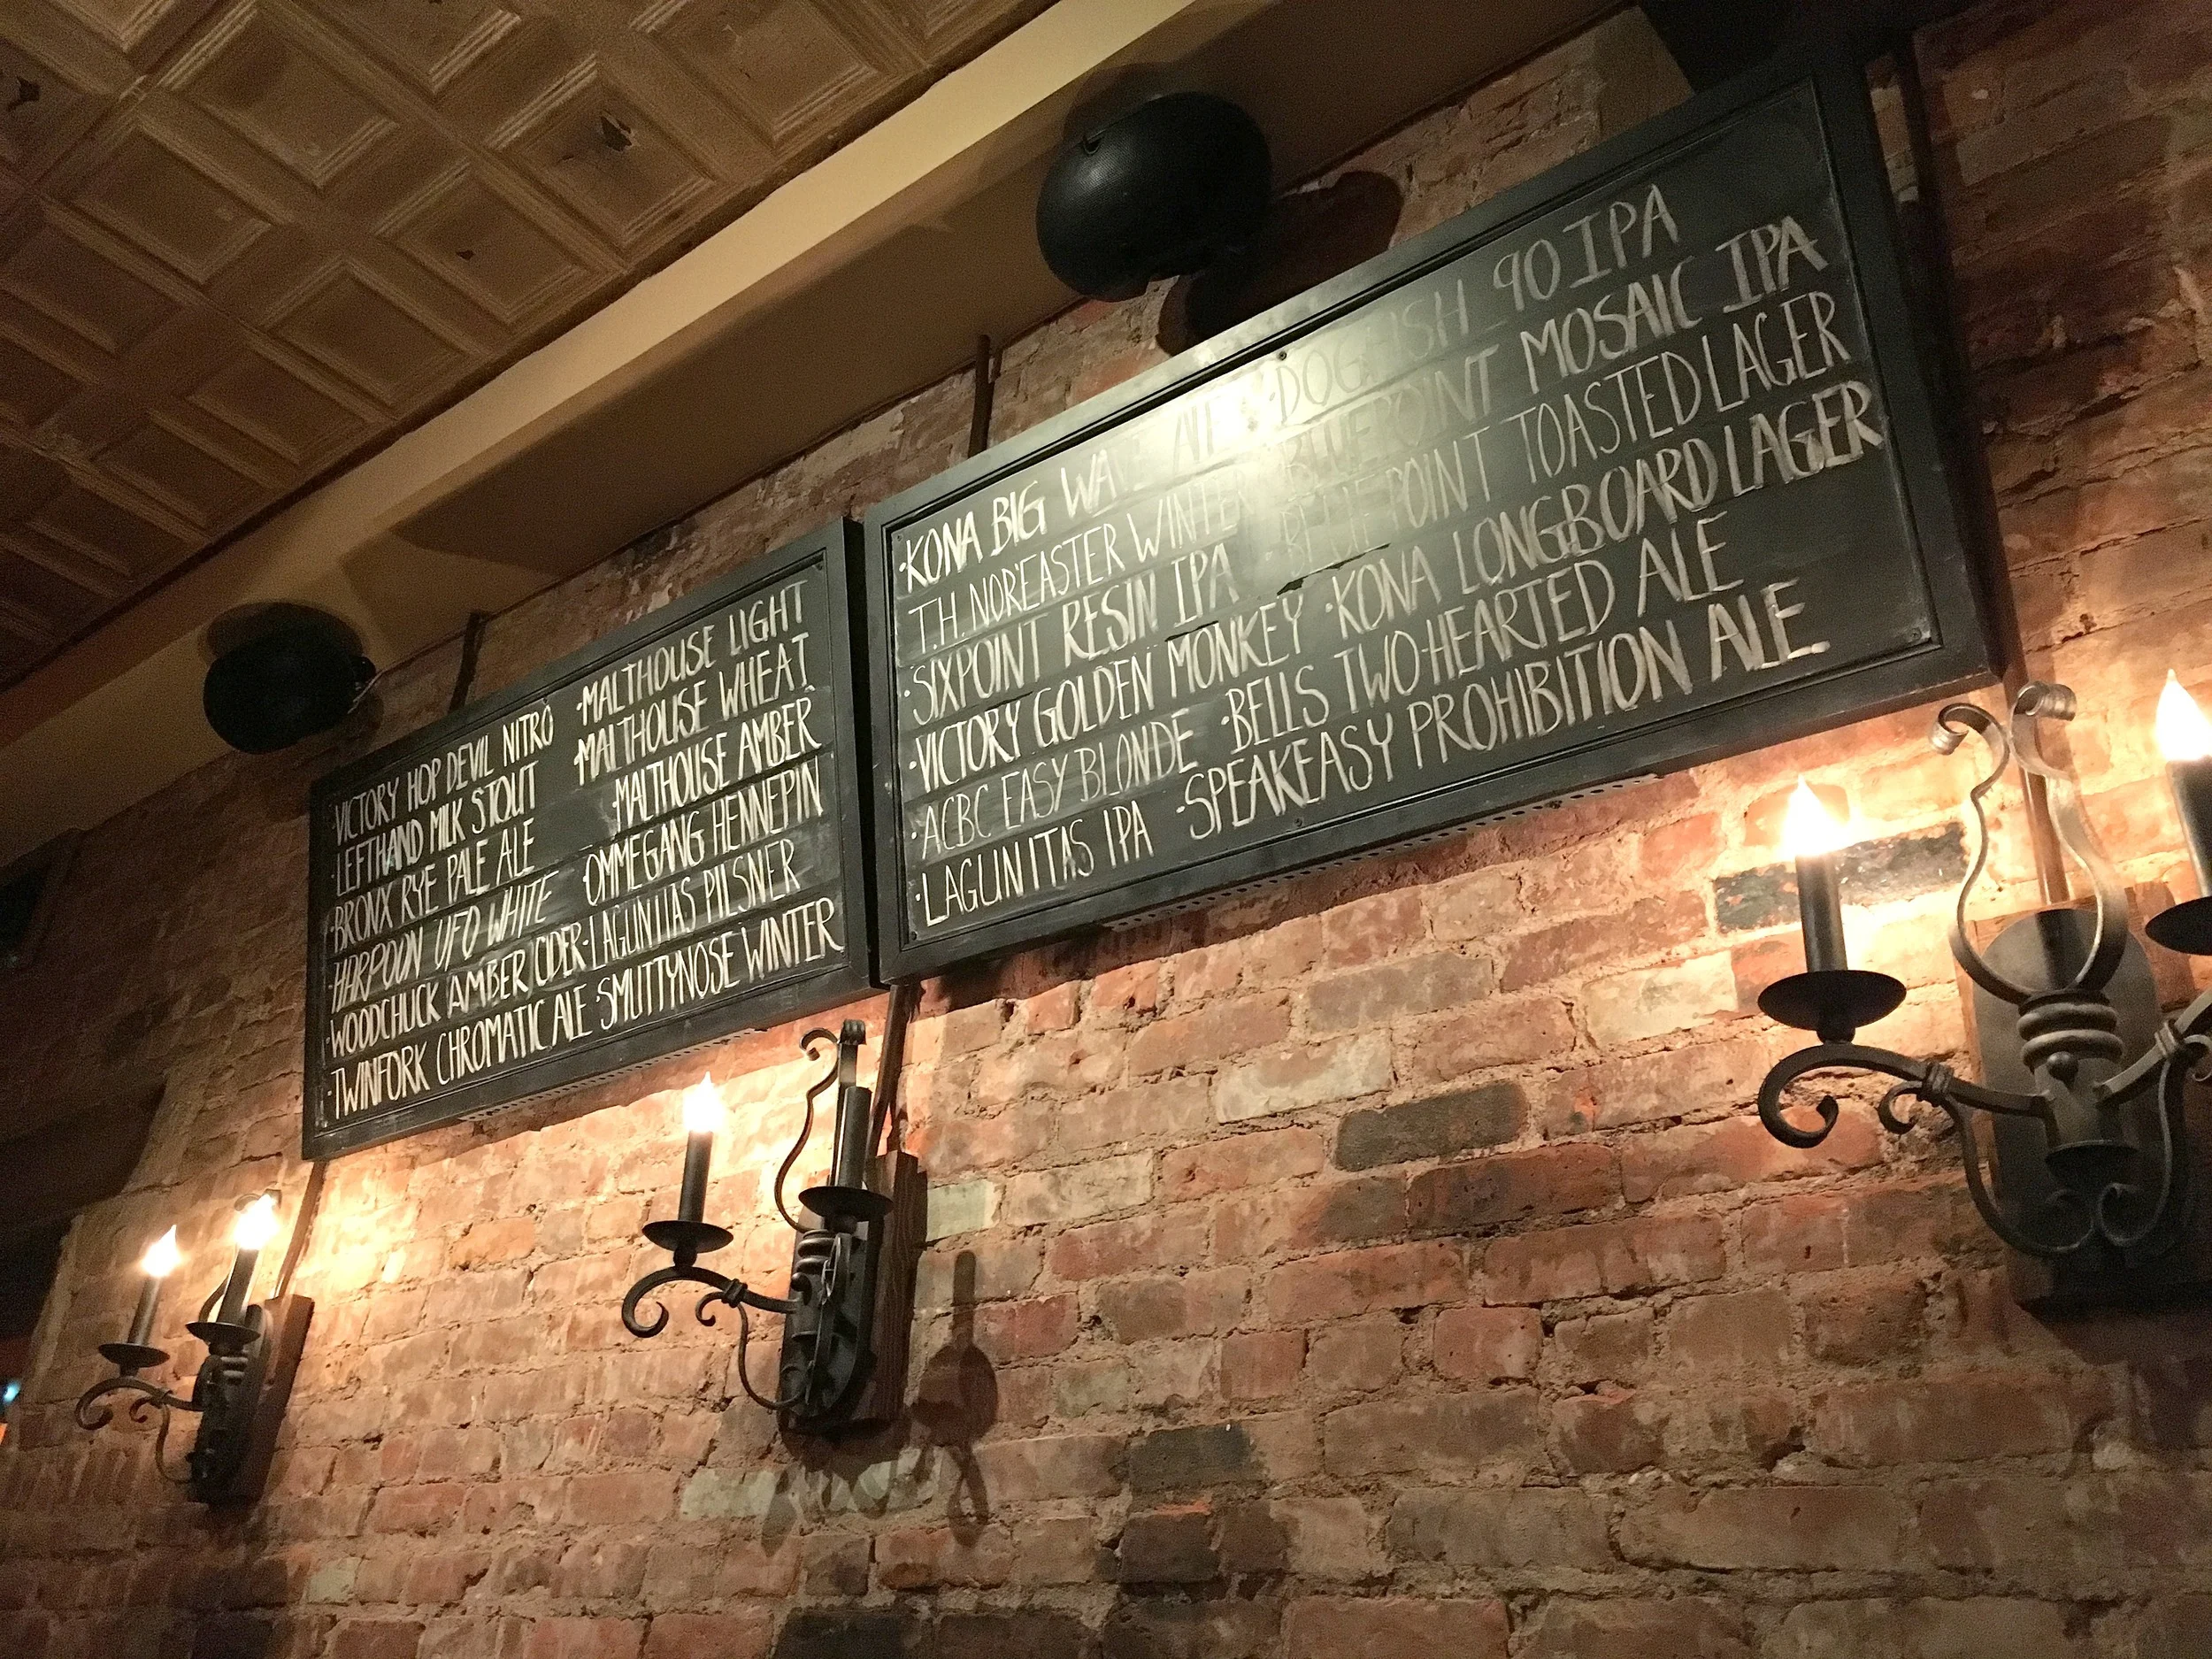 ·VICTORY HOP DEVIL NITRO
·LEFTHAND MILK STOUT
·BRONX RYE PALE ALE
·HARPOON UFO WHITE
·WOODCHUCK AMBER CIDER
·TWINFORK CHROMATIC ALE
·MALTHOUSE LIGHT
·MALTHOUSE WHEAT
·MALTHOUSE AMBER
·OMMEGANG HENNEPIN
·LAGUNITAS PILSNER
·SMUTTYNOSE WINTER
·KONA BIG WAVE ALE
T.H. NOR'EASTER WINTER
·SIXPOINT RESIN IPA
·VICTORY GOLDEN MONKEY
·ACBC EASY BLONDE
·LAGUNITAS IPA
·DOGFISH 90 IPA
BLUEPOINT MOSAIC IPA
BLUEPOINT TOASTED LAGER
·KONA LONGBOARD LAGER
·BELLS TWO-HEARTED ALE
·SPEAKEASY PROHIBITION ALE.